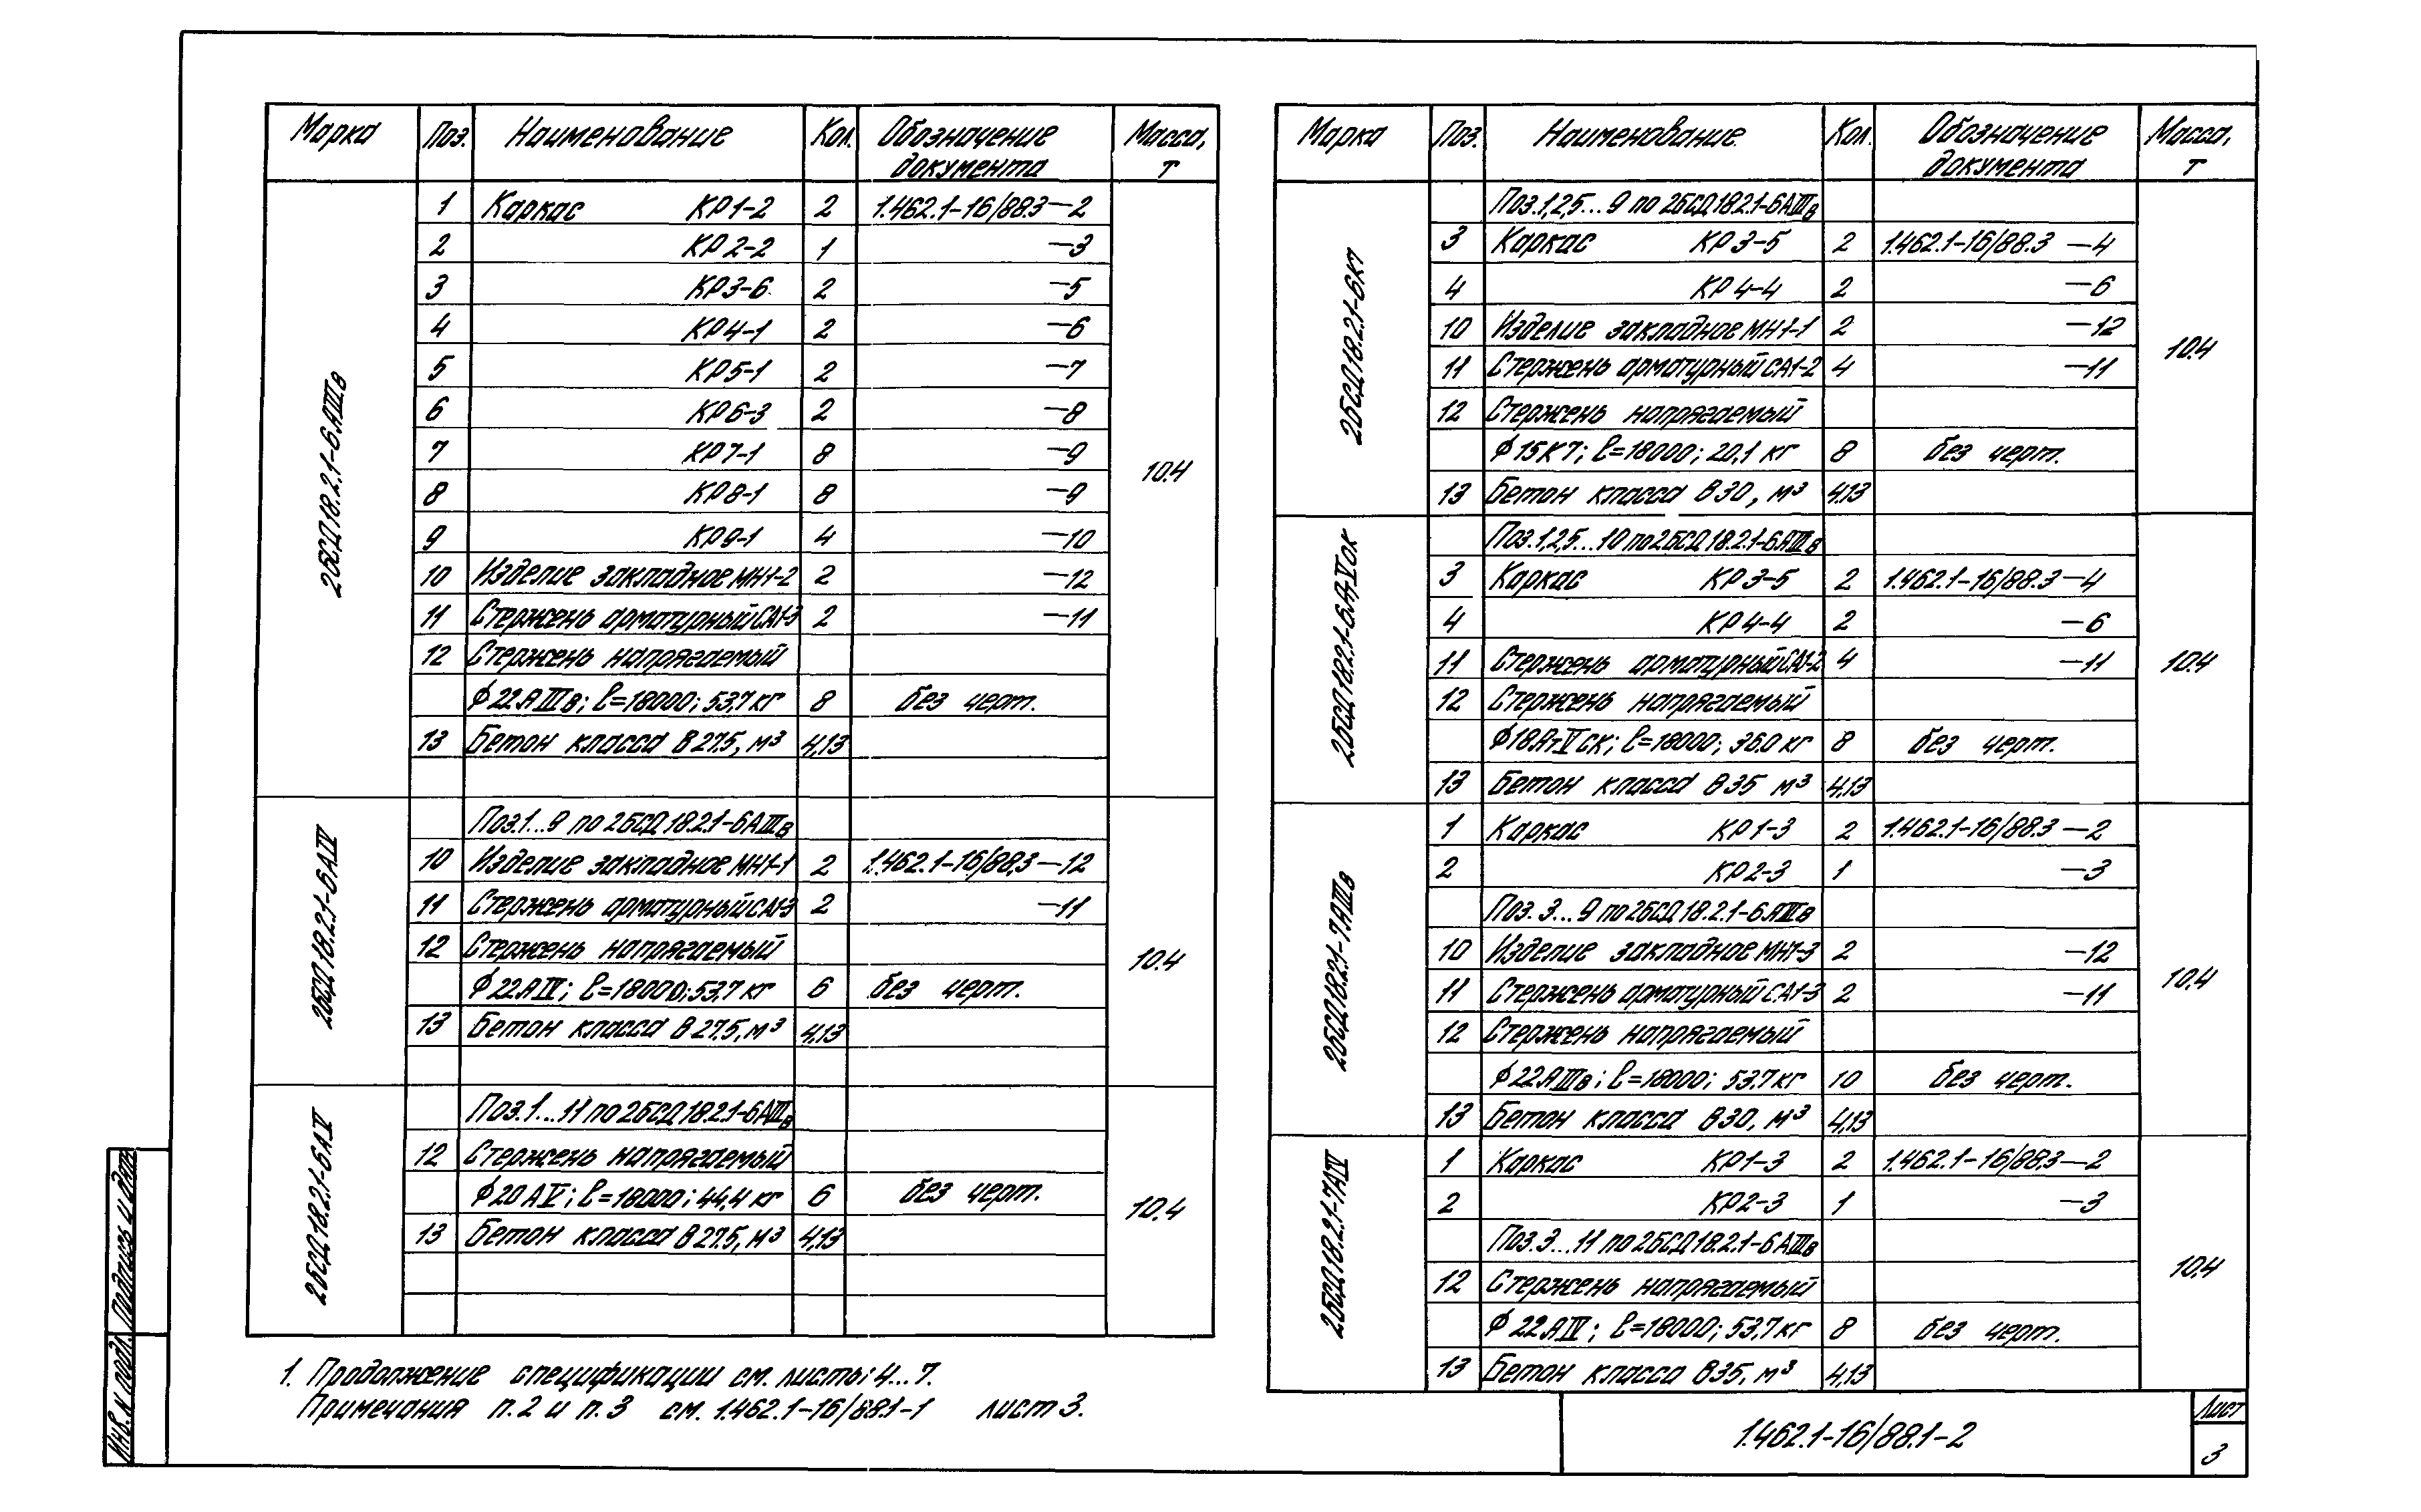 Марка Поз. Наименование Кол. Обозначение документа Масса, т
2БСД18.2.1-6АIIIв 10.4
1 Каркас КР1-2 2 1.462.1-16/88.3-2
2 КР2-2 1 -3
3 КР3-6 2 -5
4 КР4-1 2 -6
5 КР5-1 2 -7
6 КР6-3 2 -8
7 КР7-1 8 -9
8 КР8-1 8 -9
9 КР9-1 4 -10
10 Изделие закладное МН1-2 2 -12
11 Стержень арматурный СА1-3 2 -11
12 Стержень напрягаемый
ϕ22АIIIв; ℓ=18000; 53,7 кг 8 без черт.
13 Бетон класса В27.5, м³ 4,13
2БСД18.2.1-6АIV 10.4
Поз.1...9 по 2БСД18.2.1-6АIIIв
10 Изделие закладное МН1-1 2 1.462.1-16/88.3-12
11 Стержень арматурный СА1-3 2 -11
12 Стержень напрягаемый
ϕ22АIV; ℓ=18000; 53,7 кг 6 без черт.
13 Бетон класса В27.5, м³ 4,13
2БСД18.2.1-6АV 10.4
Поз.1...11 по 2БСД18.2.1-6АIIIв
12 Стержень напрягаемый
ϕ20АV; ℓ=18000; 44,4 кг 6 без черт.
13 Бетон класса В27.5, м³ 4,13
1. Продолжение спецификации см. листы 4...7.
Примечания п.2 и п.3 см. 1.462.1-16/88.1-1 лист 3.
Марка Поз. Наименование Кол. Обозначение документа Масса, т
2БСД18.2.1-6К7 10.4
Поз.1,2,5...9 по 2БСД18.2.1-6АIIIв
3 Каркас КР3-5 2 1.462.1-16/88.3 -4
4 КР4-4 2 -6
10 Изделие закладное МН1-1 2 -12
11 Стержень арматурный СА1-2 4 -11
12 Стержень напрягаемый
ϕ15К7; ℓ=18000; 20,1 кг 8 без черт.
13 Бетон класса В30, м³ 4,13
10.4
Поз.1,2,5...10 по 2БСД18.2.1-6АIIIв
3 Каркас КР3-5 2 1.462.1-16/88.3-4
4 КР4-4 2 -6
11 Стержень арматурный СА1-2 4 -11
12 Стержень напрягаемый
ϕ18АтVСК; ℓ=18000; 36.0 кг 8 без черт.
13 Бетон класса В35 м³ 4,13
2БСД18.2.1-7АIIIв 10.4
1 Каркас КР1-3 2 1.462.1-16/88.3-2
2 КР2-3 1 -3
Поз. 3...9 по 2БСД18.2.1-6АIIIв
10 Изделие закладное МН1-3 2 -12
11 Стержень арматурный СА1-3 2 -11
12 Стержень напрягаемый
ϕ22АIIIв; ℓ=18000; 53.7 кг 10 без черт.
13 Бетон класса В30, м³ 4,13
2БСД18.2.1-7АIV 10.4
1 Каркас КР1-3 2 1.462.1-16/88.3-2
2 КР2-3 1 -3
Поз.3...11 по 2БСД18.2.1-6АIIIв
12 Стержень напрягаемый
ϕ22АIV; ℓ=18000; 53,7 кг 8 без черт.
13 Бетон класса В35, м³ 4,13
1.462.1-16/88.1-2
Лист
3
Инв.N подл. Подпись и дата